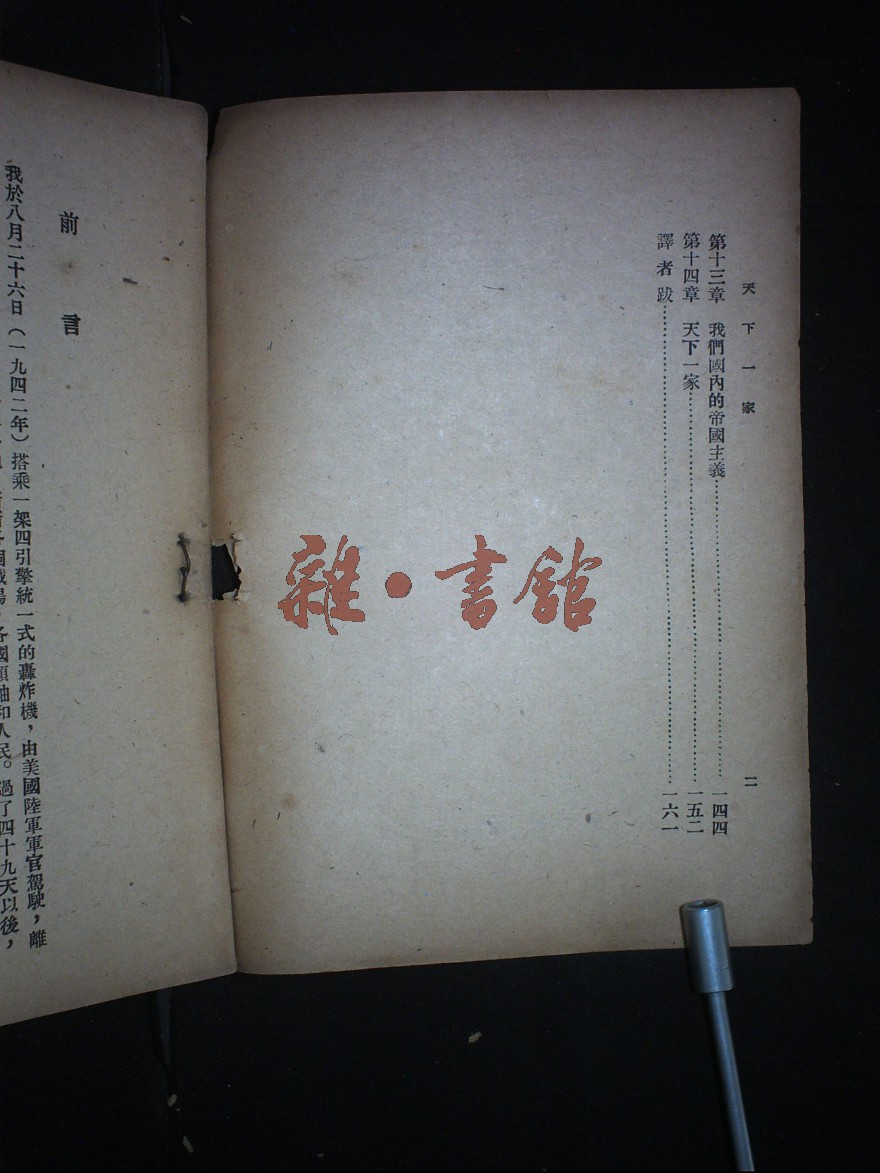 天下一家
二
第十三章 我們國內的帝國主義………一四四
第十四章 天下一家………一五二
譯者跋………一六一
前言
我於八月二十六日（一九四二年）搭乘一架四引擎統一式的轟炸機，由美國陸軍軍官駕駛，離
各國領袖和人民。過了四十九天以後，
雜·書館